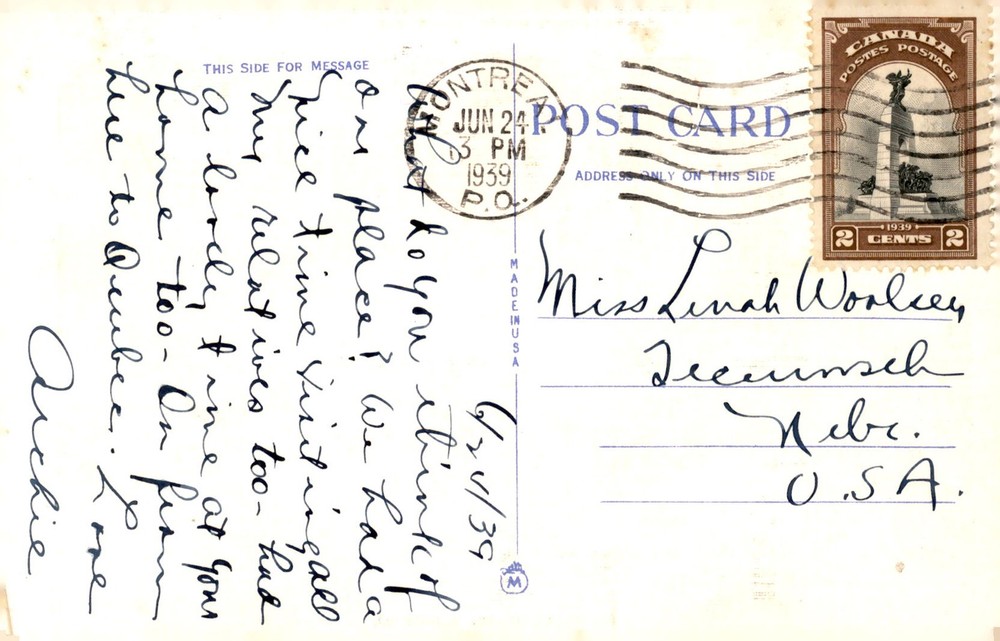 THIS SIDE FOR MESSAGE
6/24/39
What do you think of
our place? We had a
nice time visiting all
my relatives too - had
a lovely time at your
home too - On from
here to Quebec. Love
Archie
MONTREAL
JUN 24
3 PM
1939
P.Q.
POST CARD
ADDRESS ONLY ON THIS SIDE
MADE IN USA
M
CANADA
POSTES POSTAGE
1939
2 CENTS 2
Miss Lenah Woolsey
Tecumseh
Nebr.
U.S.A.